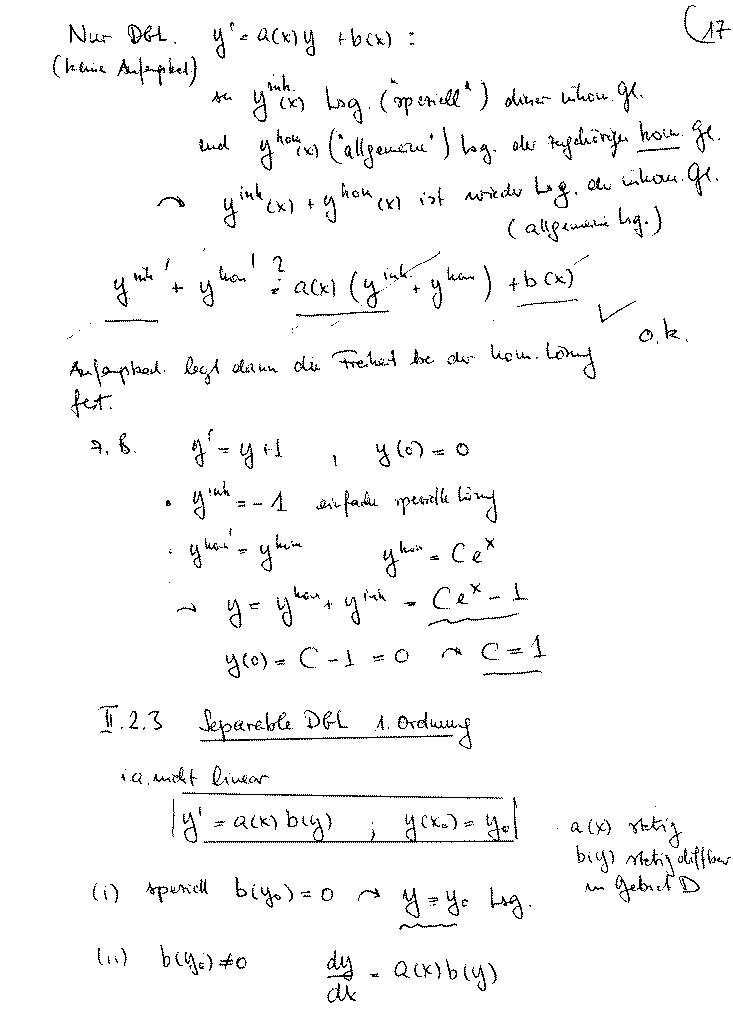 (17
Nur DGL. y' = a(x) y + b(x) :
(keine Anfangsbed)
sei y^inh.(x) Lsg. ("speziell") dieser inhom. Gl.
und y^hom(x) ("allgemeine") Lsg. der zugehörigen hom. Gl.
⤳ y^inh(x) + y^hom(x) ist wieder Lsg. der inhom. Gl.
(allgemeine Lsg.)
y^inh' + y^hom' ?= a(x) (y^inh + y^hom) + b(x)
✓ o.k.
Anfangsbed. legt dann die Freiheit bei der hom. Lösung
fest.
z. B. y' = y + 1 , y(0) = 0
• y^inh = -1 einfache spezielle Lösung
• y^hom' = y^hom y^hom = C e^x
⤳ y = y^hom + y^inh = C e^x - 1
y(0) = C - 1 = 0 ⤳ C = 1
II.2.3 Separable DGL 1. Ordnung
i.a. nicht linear
y' = a(x) b(y) ; y(x₀) = y₀
a(x) stetig
b(y) stetig diffbar
in Gebiet D
(i) speziell b(y₀) = 0 ⤳ y = y₀ Lsg.
(ii) b(y₀) ≠ 0 dy/dx = a(x) b(y)